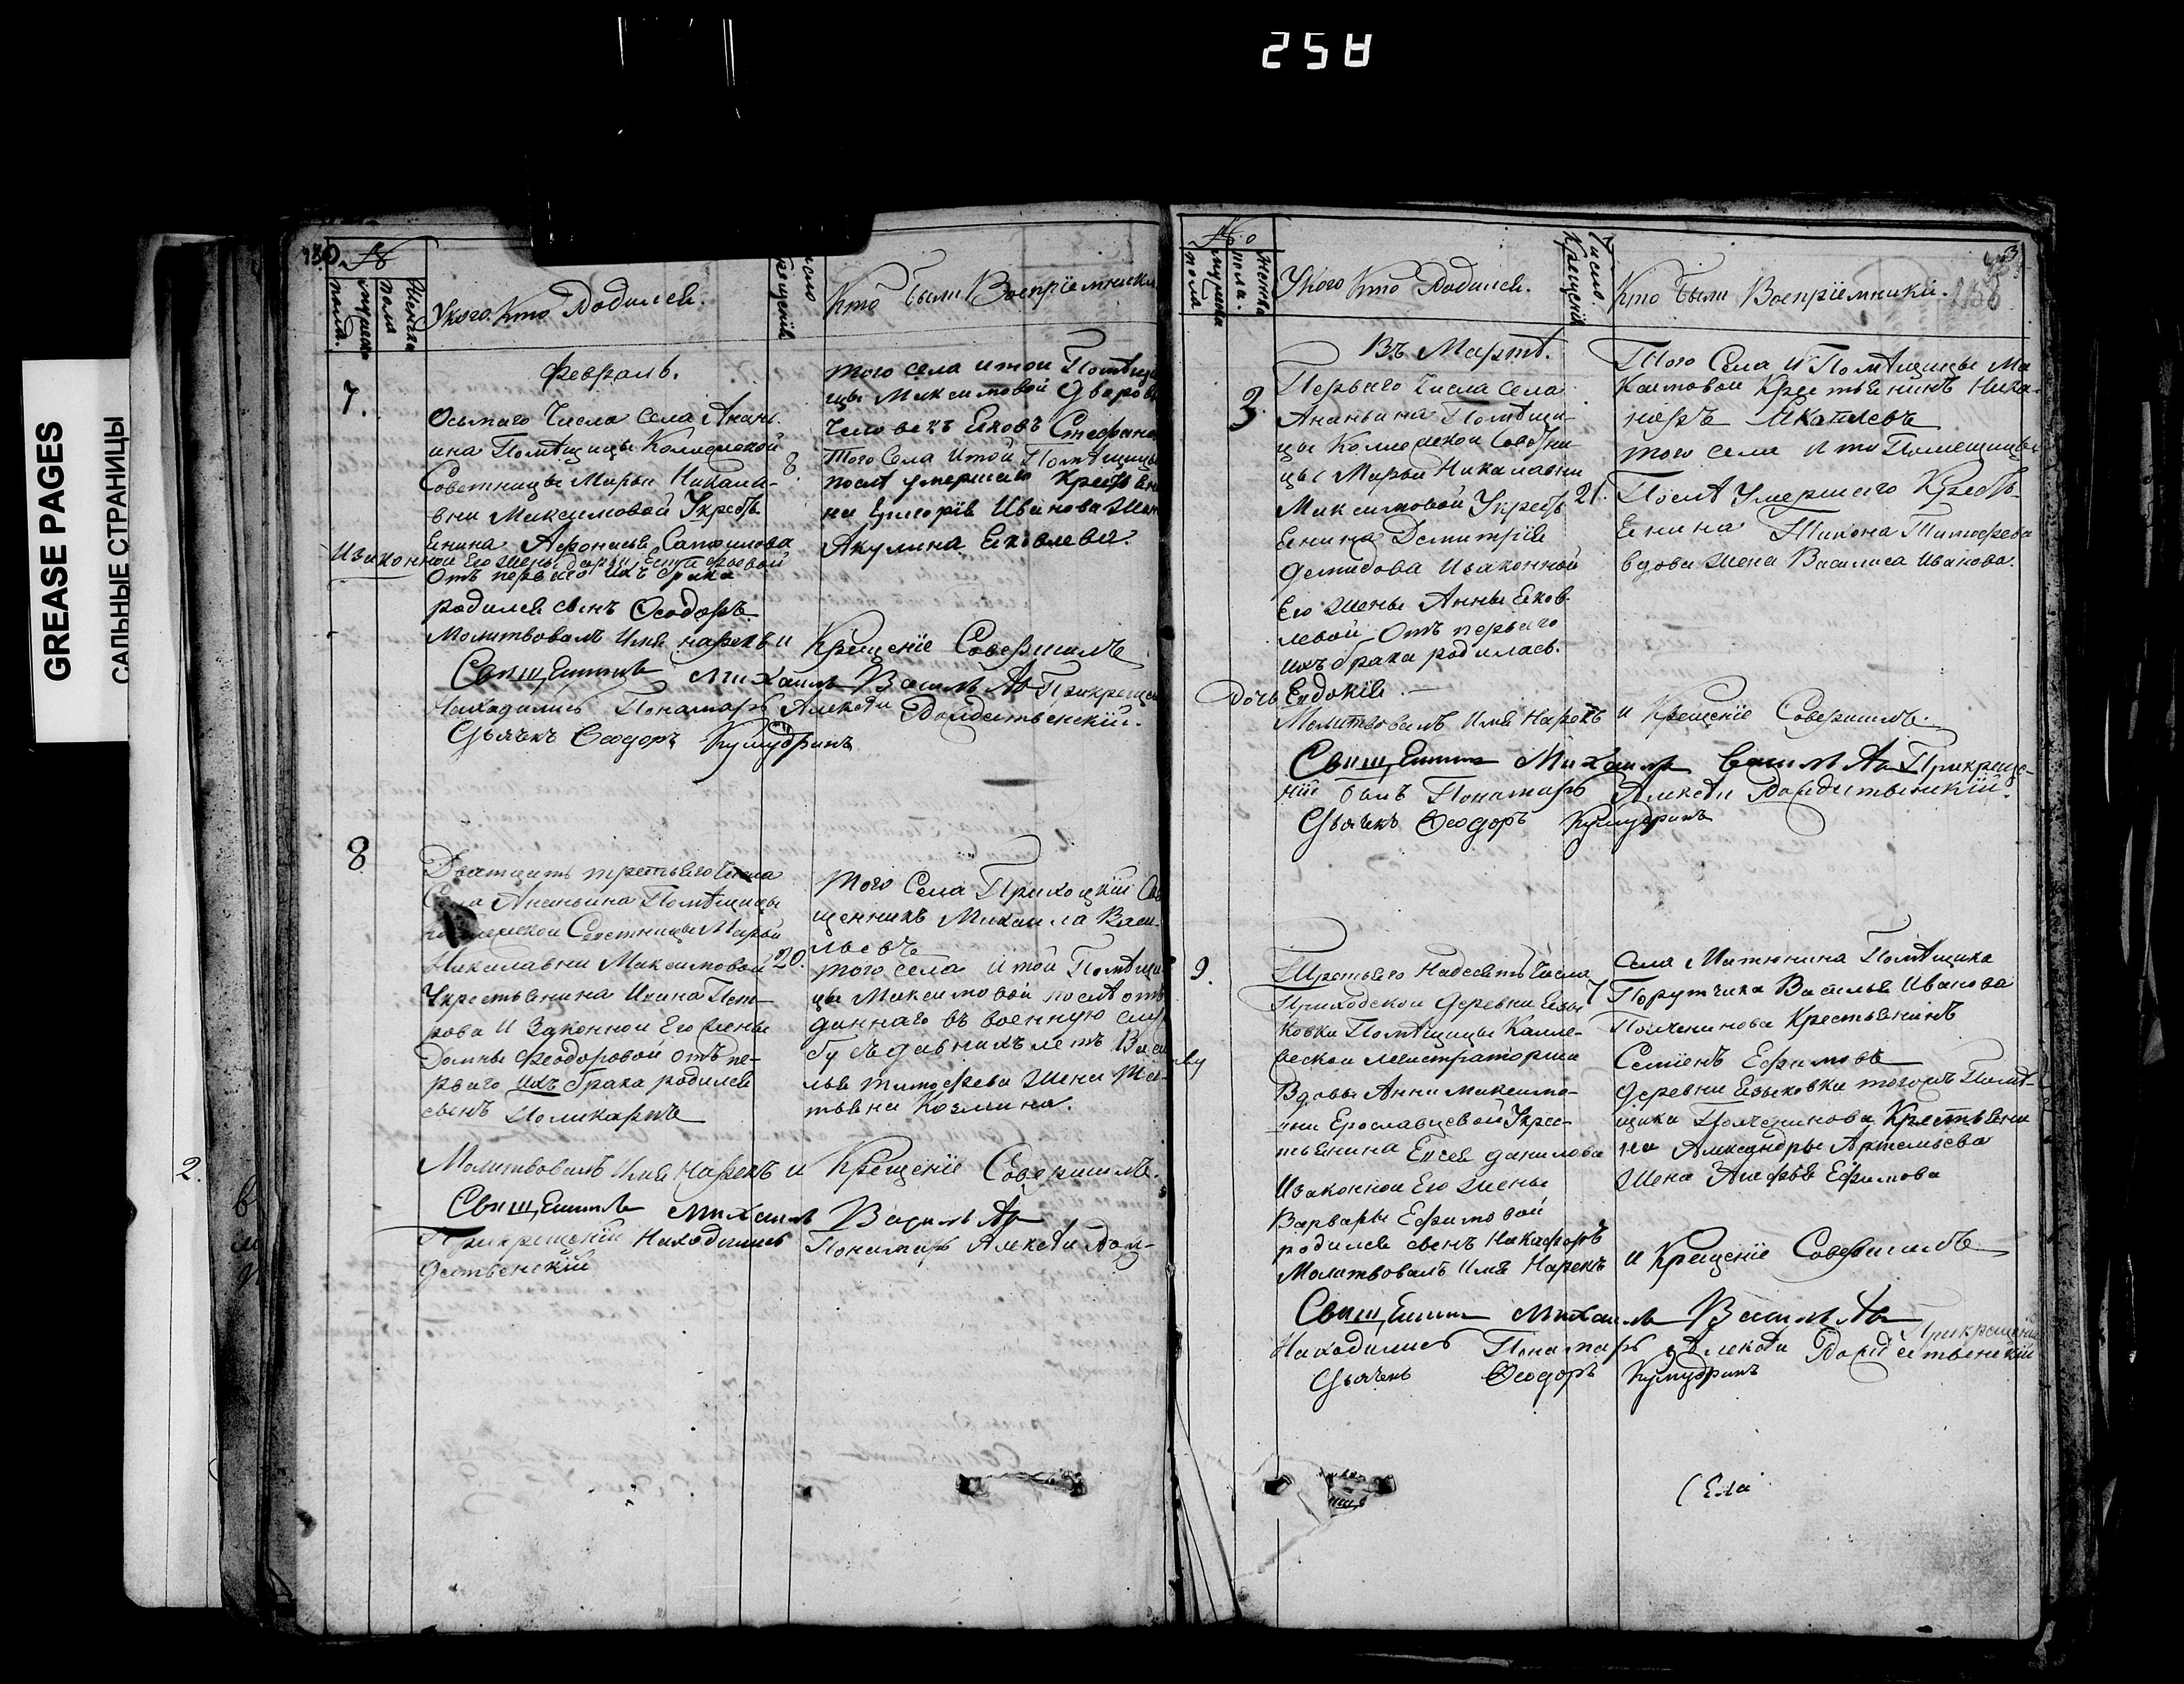 258
GREASE PAGES
САЛЬНЫЕ СТРАНИЦЫ
130.
№
мужеска пола
Женска пола.
У кого. Кто Родился.
Число крещенїя
Кто были Воспрїемники
Февраль.
7.
Осьмаго Числа Села Анань
ина Помѣщицы Колежской
Советницы Марьи Никола-
вни Максимовой Укресть
янина Афонасья
Изаконной Его жены
Отъ перваго ихъ брака
родился сынъ Ѳеодоръ.
8.
того села итои Помѣщи
цы Максимовой Дворовы
Человекъ Яковъ Стефано
Того Села Итой Помѣщицы
послѣ умершаго Крестьяни
на Григорїя Иванова Жен
Акулина Яковлева.
Молитвовалъ Имя нарекъ и Крещенїе Совершилъ
Священникъ Михаилъ Васильѣв Прикреще
Находились Понамарь Алексѣи Рождественскїй.
Дьячекъ Ѳеодоръ Кумудринъ
8
Дватцать третьяго Числа
Села Ананьина Помѣщицы
Советницы Марьи
Николавни Максимовой
Укрестьянина Ивана Пет-
рова И Законной Его жены
Домны Феодоровой отъ пе-
рваго ихъ брака родился
сынъ Поликарпъ
20.
того Села Приходцкїи Св
щенникъ Михаила Васи-
льевъ
того Села Итой Помѣщи
цы Максимовой послѣ отъ
даннаго въ военную слу
бу съдавнихъ летъ Васи
лья Тимофева Жена Та-
тьяна Козмина.
Молитвовалъ Имя Нарекъ и Крещенїе Совершилъ.
Священникъ Михаилъ Васильѣв
Прикрещенїи Находились Понамарь Алексѣи Рож-
дественскїй
2.
№
мужеска пола
Женска пола.
У кого Кто Родился.
Число. Крещенїя
Кто Были Воспрїемники.
3
Въ Мартѣ.
3.
Перваго Числа Села
Ананьина Помѣщи-
цы Колежской Советни
цы Марьи Николавни
Максимовой Укресть
янина Дмитрїя
Демидова Изаконной
Его Жены Анны Яков-
левой Отъ перваго
ихъ брака родилась.
дочь Евдокїя.
21.
Того Села И Помѣщицы Ма
ксимовой Крестьянинъ Ника-
норъ
того села И той Помещицы
Послѣ Умершаго Кресть-
янина Тихона Тимофева
вдова Жена Василиса Иванова.
Молитвовалъ Имя Нарекъ и Крещенїе Совершилъ.
Священникъ Михаилъ Васильѣв Прикреще-
нїи былъ Понамарь Алексѣи Рождественскїй.
Дьячекъ Ѳеодоръ Кумудринъ
9.
Третьяго Надесять Числа
Приходской Деревни Языковки
Помѣщицы Калле-
жской
Вдовы Анны Максимо-
вни Ерославцевой Укрес-
тьянина Елсея Данилова
Изаконной Его Жены
Варвары Ефимовой
родился сынъ Никафоръ
7
Села Митюнина Помѣщика
Порутчика Василья Иванова
Крестьянинъ
Семїенъ Ефимовъ
деревни Языковки тогожъ Помѣ-
щика Крестьяни
на Александры Артемьева
Жена Ефимова
Молитвовалъ Имя Нарекъ и Крещенїе Совершилъ
Священникъ Михаилъ Васильѣв Прикрещенїи
Находились Понамарь Алексѣи Рождественскїй
Дьячекъ Ѳеодоръ Кумудринъ